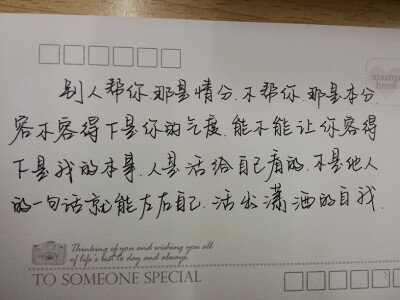 stamp
here
别人帮你.那是情分.不帮你.那是本分.
容不容得下是你的气度.能不能让你容得
下是我的本事.人是活给自己看的.不是他人
的一句话就能左右自己.活出潇洒的自我.
Thinking of you and wishing you all
of life's best to day and always.
TO SOMEONE SPECIAL